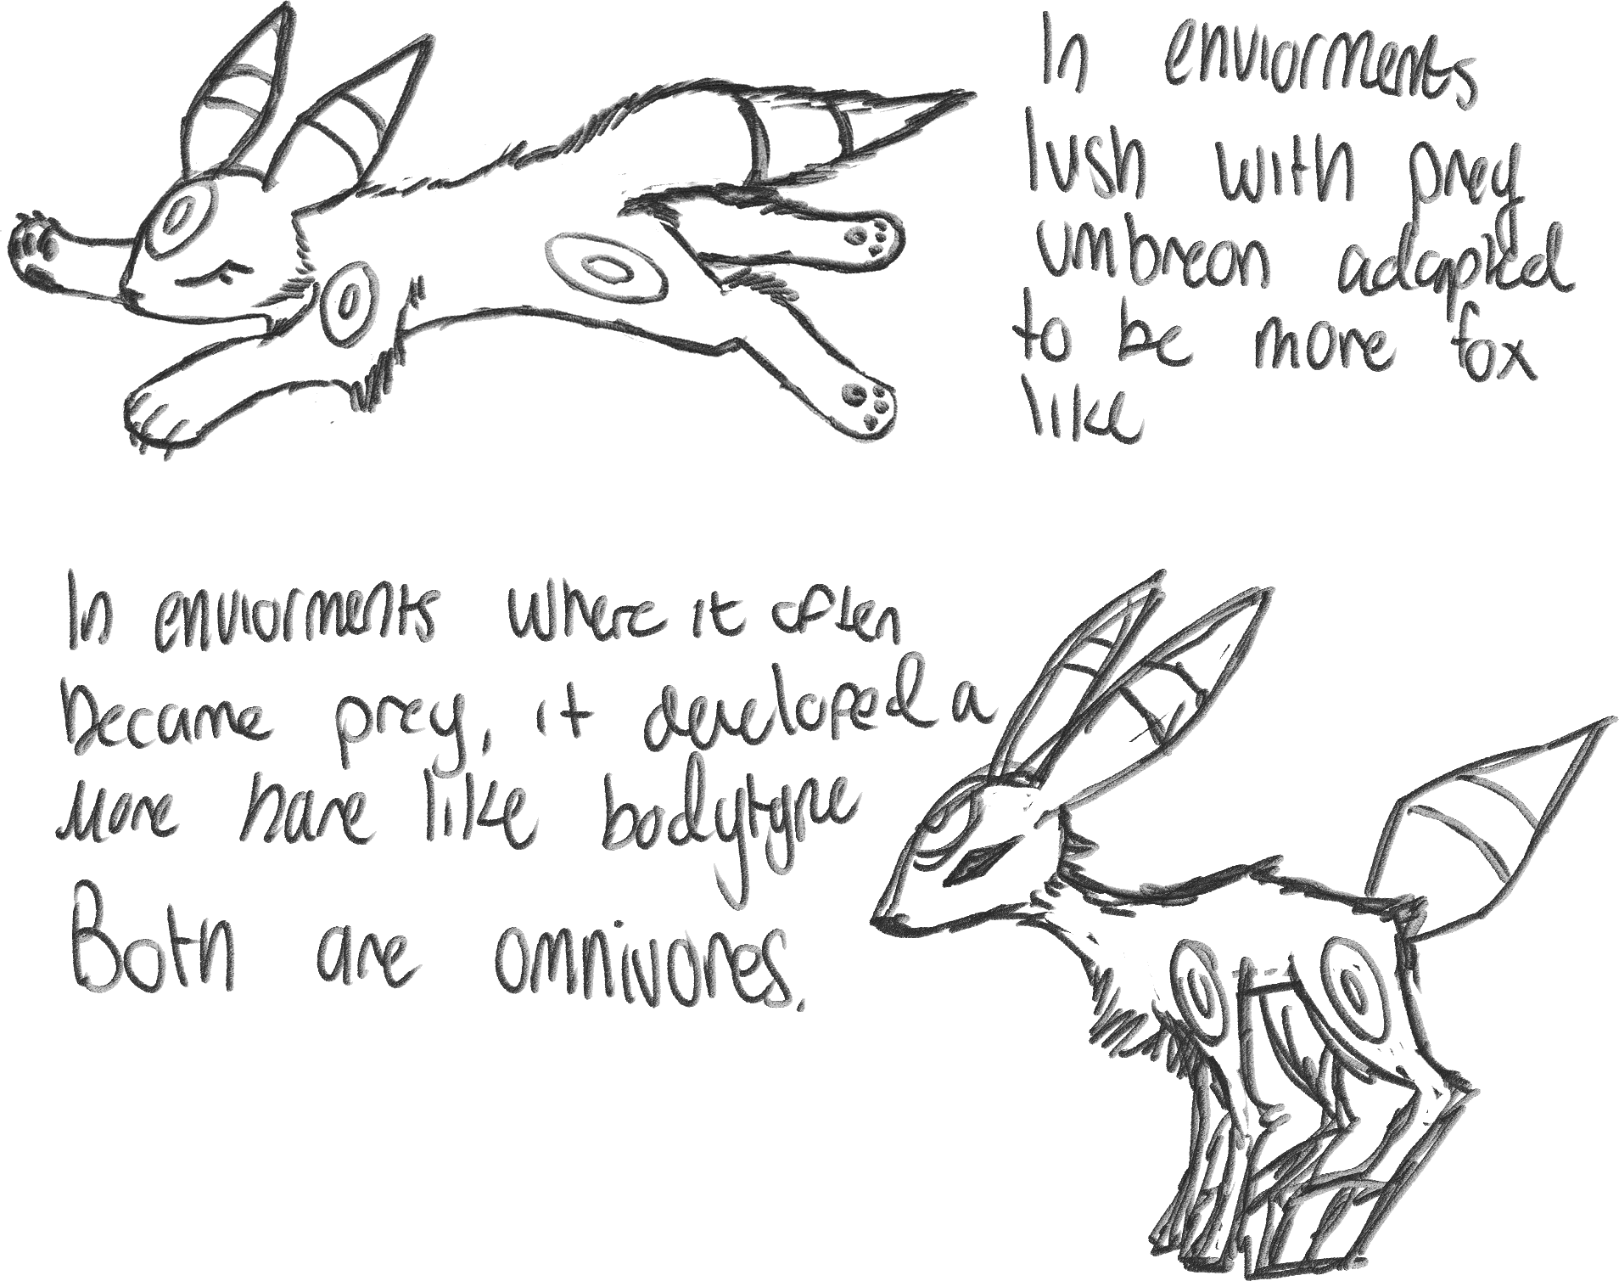 In enviorments
lush with prey
umbreon adapted
to be more fox
like
In enviorments where it often
became prey, it developed a
more hare like bodytype
Both are omnivores.